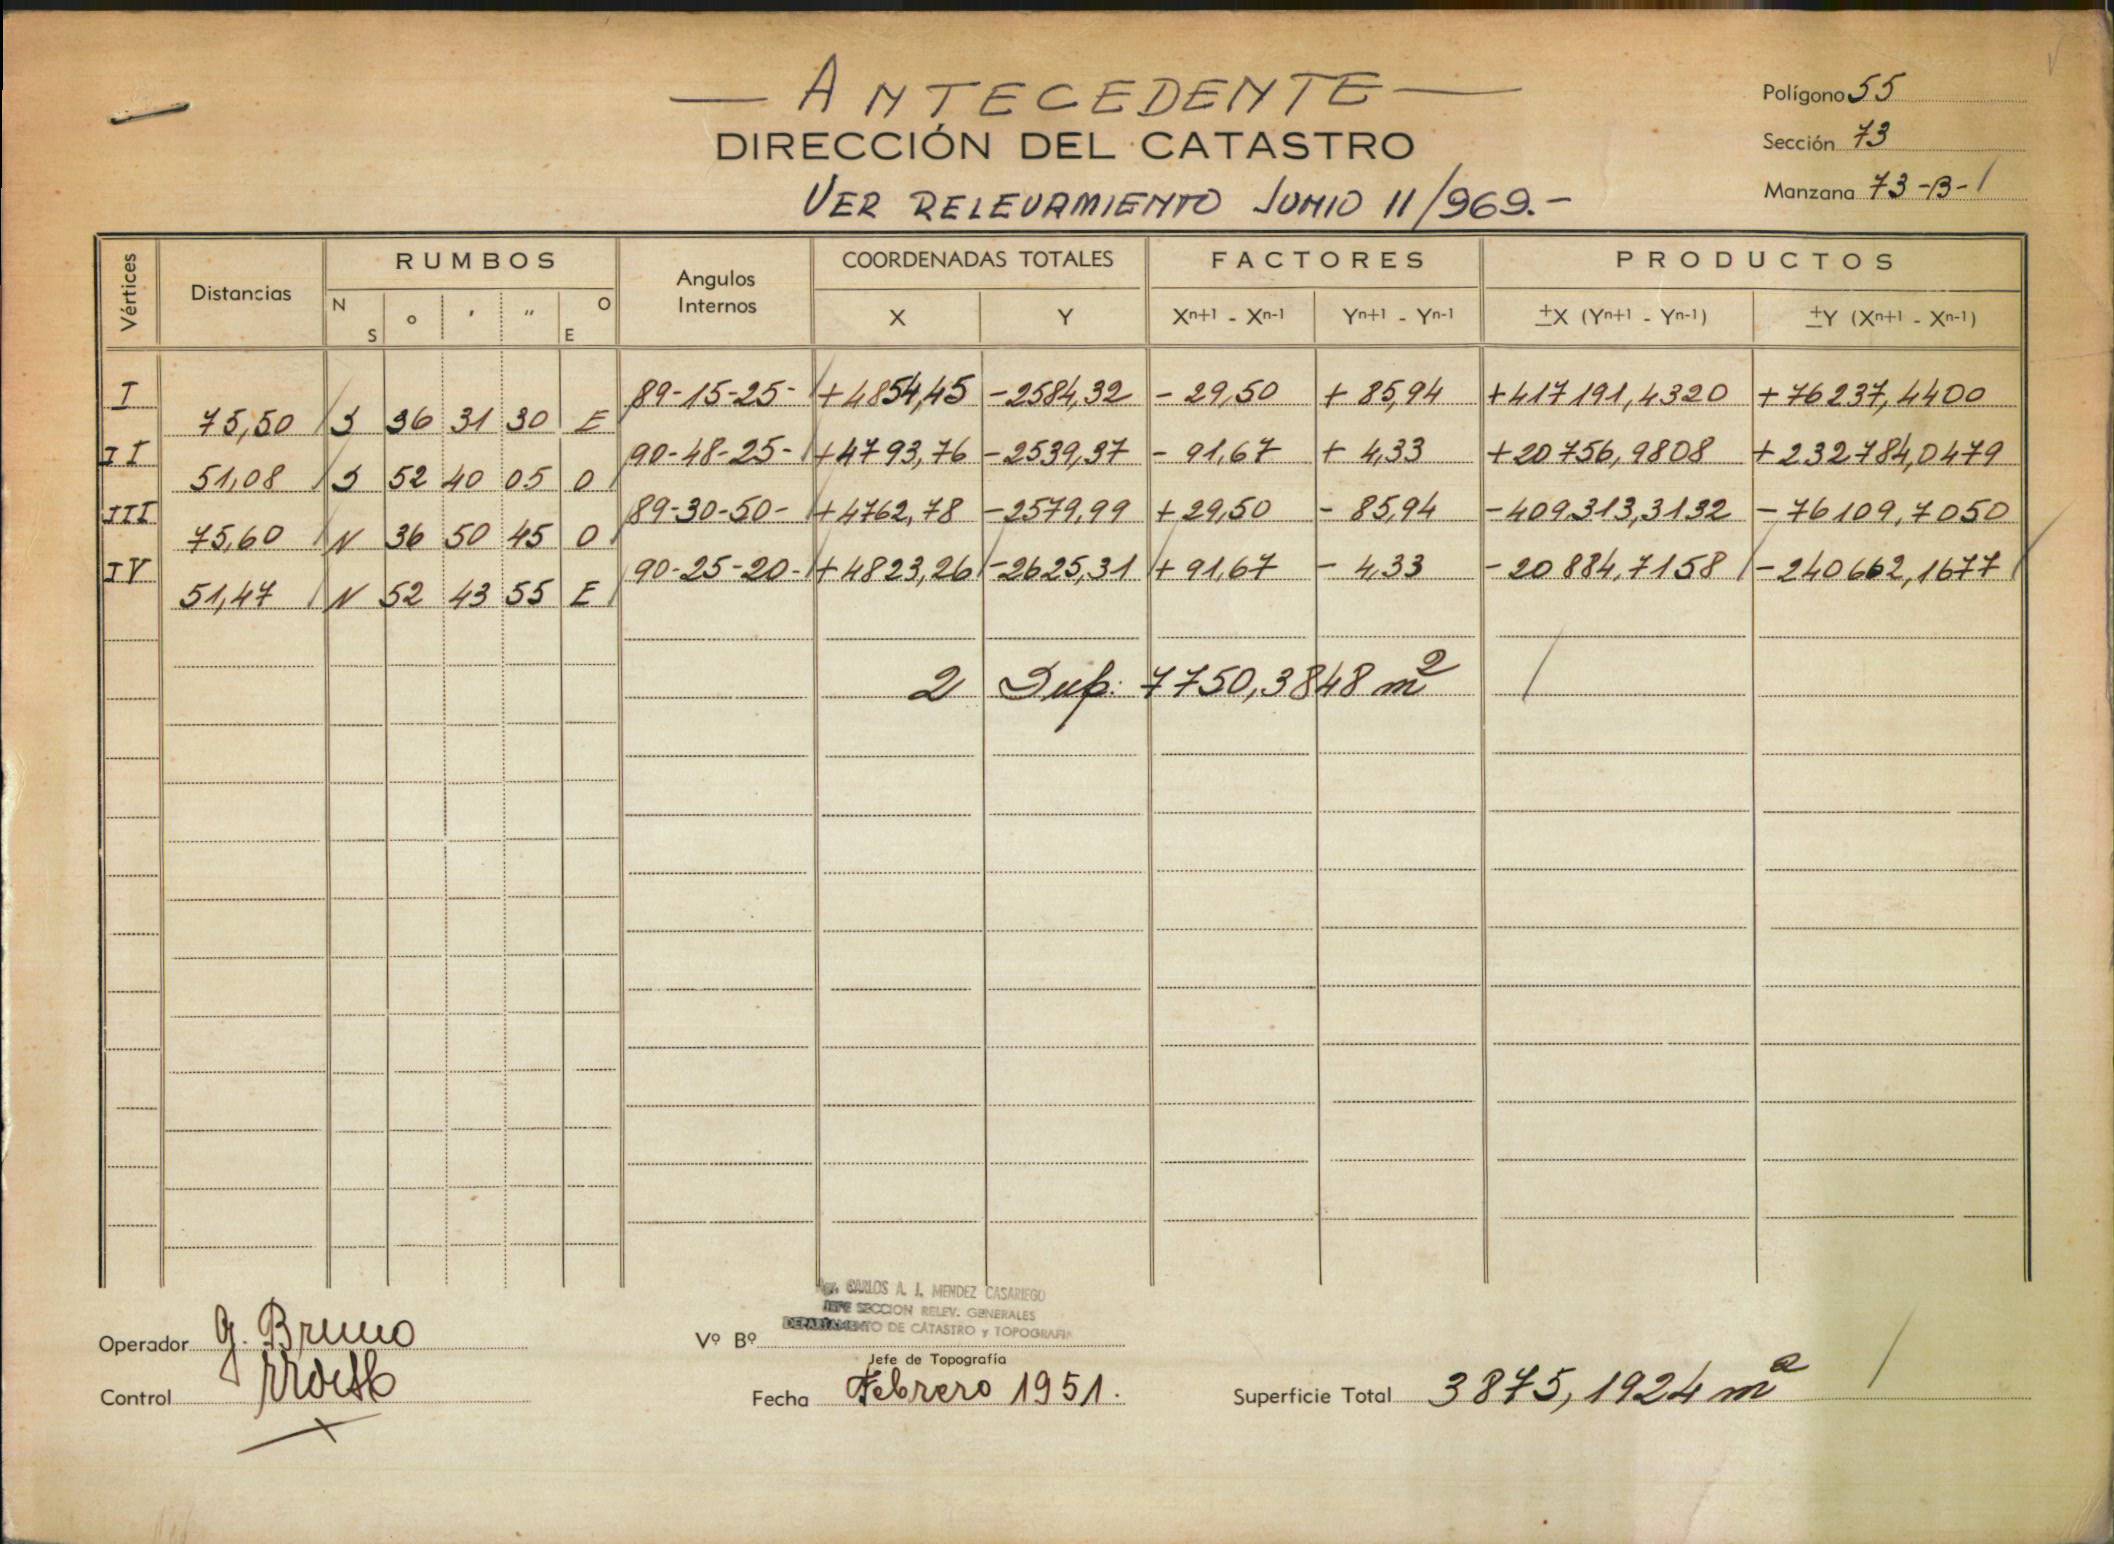 — ANTECEDENTE —
DIRECCIÓN DEL CATASTRO
VER RELEVAMIENTO JUNIO 11/969.-
Polígono 55
Sección 73
Manzana 73-B-1
Vértices Distancias RUMBOS Angulos Internos COORDENADAS TOTALES FACTORES PRODUCTOS
N S ° ' " O E X Y Xn+1 - Xn-1 Yn+1 - Yn-1 ±X (Yn+1 - Yn-1) ±Y (Xn+1 - Xn-1)
I 89-15-25- +4854,45 -2584,32 - 29,50 + 85,94 +417191,4320 +76237,4400
75,50 S 36 31 30 E
II 90-48-25- +4793,76 -2539,37 - 91,67 + 4,33 +20756,9808 +232784,0479
51,08 S 52 40 05 O
III 89-30-50- +4762,78 -2579,99 +29,50 - 85,94 -409.313,3132 -76109,7050
75,60 N 36 50 45 O
IV 90-25-20- +4823,26 -2625,31 +91,67 - 4,33 -20884,7158 -240662,1677
51,47 N 52 43 55 E
2 Sup: 7750,3848 m2
CARLOS A. J. MENDEZ CASARIEGO
JEFE SECCION RELEV. GENERALES
DEPARTAMENTO DE CATASTRO y TOPOGRAFIA
Operador G. Bruno
Vº Bº
Jefe de Topografía
Control
Fecha Febrero 1951.
Superficie Total 3875,1924 m2